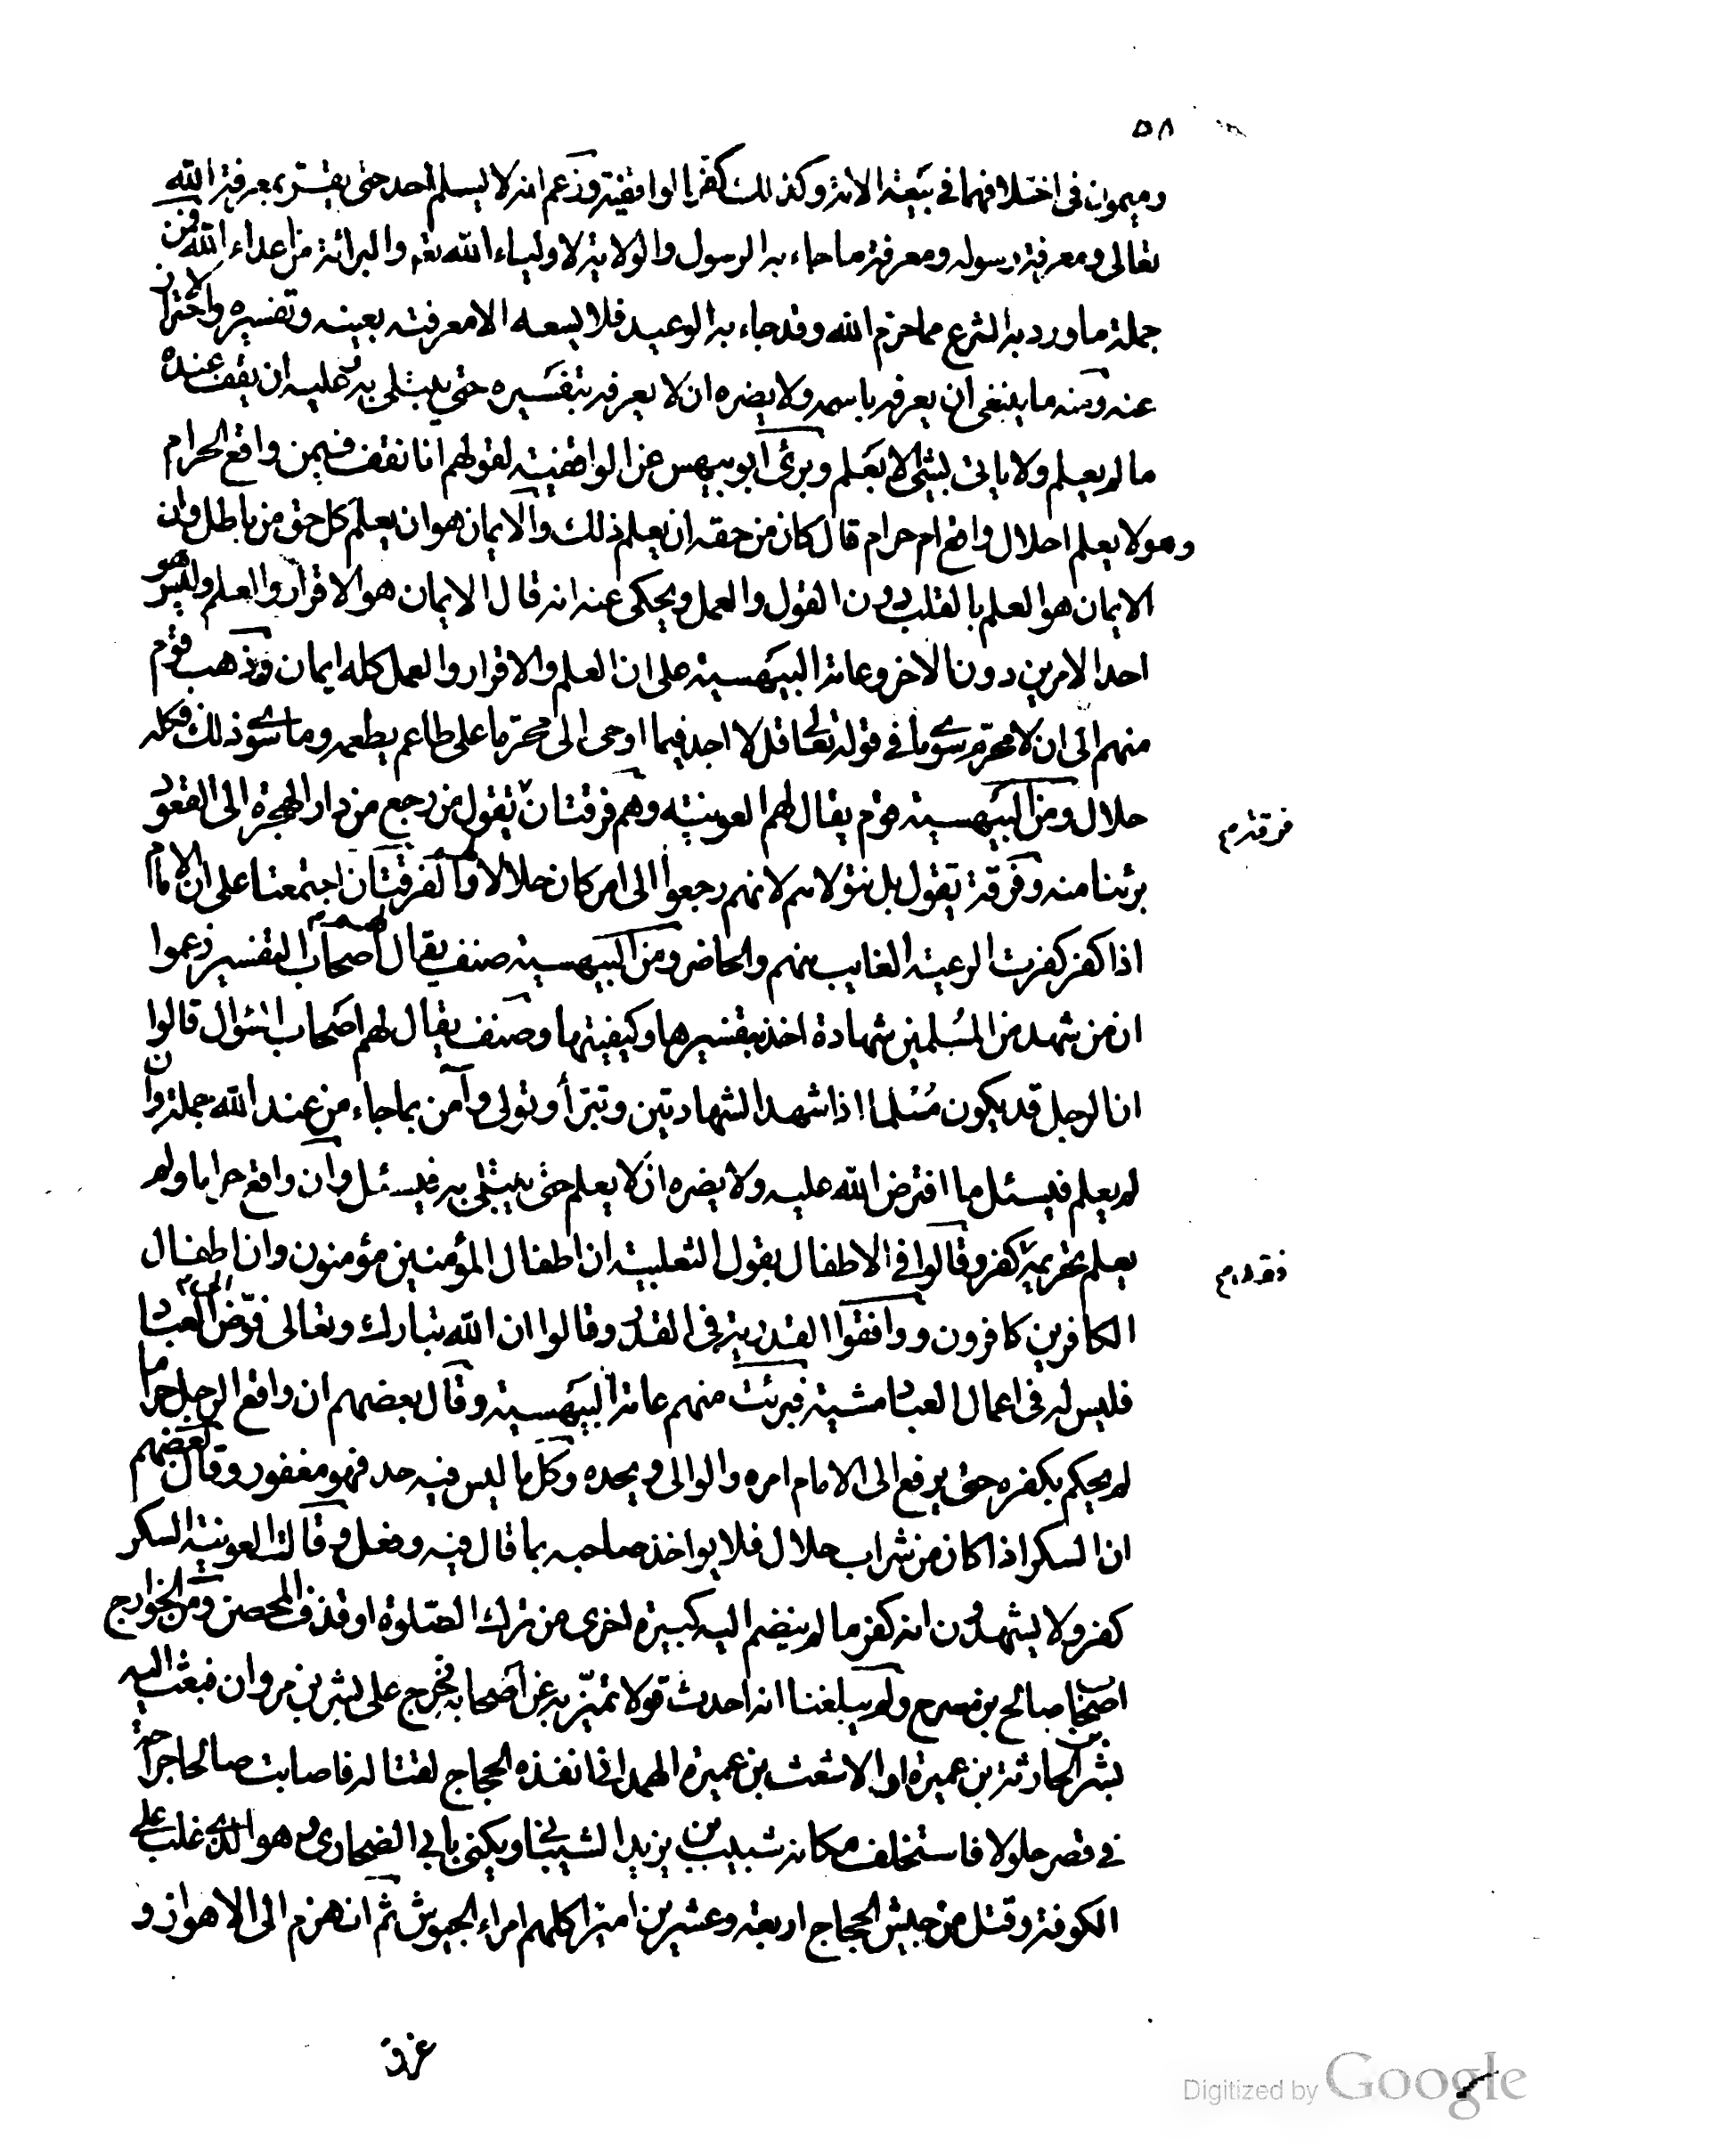 ٥٨
وميمون في اختلافهما في بيعة الامة وكذلك كفر بالواقفية وزعم انه لا يسلم احد حتى يقر بمعرفة الله
تعالى ومعرفة رسوله ومعرفة ما جاء به الرسول والولاية لاولياء الله تعـ والبرائة من اعداء الله فمن
جملة ما ورد به الشرع مما حرم الله وقد جاء به الوعيد فلا يسعه الا معرفته بعينه وتفسيره والاحتراز
عنه ومنه ما ينبغي ان يعرفه باسمه ولا يضره ان لا يعرفه بتفسيره حتى يبتلى به وعليه ان يقف عنده
ما لم يعلم ولا ياتي بشئ الا بعلم وبرئ ابو بيهس عن الواقفية لقولهم انا نقف فيمن واقع الحرام
وهو لا يعلم احلال واقع ام حرام قال كان من حقه ان يعلم ذلك والايمان هو ان يعلم كل حق من باطل وان
الايمان هو العلم بالقلب دون القول والعمل ويحكى عنه انه قال الايمان هو الاقرار والعلم وليس هو
احد الامرين دون الاخر وعامة البيهسية على ان العلم والاقرار والعمل كله ايمان وذهب قوم
منهم الى ان لا محرم سوى ما في قوله تعالى قل لا اجد فيما اوحى الى محرما على طاعم يطعمه وما سوى ذلك فكله
حلال ومن البيهسية قوم يقال لهم العونية وهم فرقتان تقول من رجع من دار الهجرة الى القعود
فرقة م
برئنا منه وفرقة تقول بل نتولاهم لانهم رجعوا الى امر كان حلالا والفرقتان اجتمعتا على ان الامام
اذا كفر كفرت الرعية الغايب منهم والحاضر ومن البيهسية صنف يقال لهم اصحاب التفسير زعموا
ان من شهد من المسلمين شهادة اخذ بتفسيرها وكيفيتها وصنف يقال لهم اصحاب السؤال قالوا
ان الرجل قد يكون مسلما اذا شهد الشهادتين وتبرأ وتولى وآمن بما جاء من عند الله جملة وان
لم يعلم فليسئل ما افترض الله عليه ولا يضره ان لا يعلم حتى يبتلى به فيسئل وان واقع حراما ولم
يعلم تحريمه كفر وقالوا في الاطفال بقول الثعلبية ان اطفال المؤمنين مؤمنون وان اطفال
فقد م
الكافرين كافرون ووافقوا القدرية في القدر وقالوا ان الله تبارك وتعالى فوض الى العباد
فليس له في اعمال العباد مشية فبرئت منهم عامة البيهسية وقال بعضهم ان واقع الرجل حراما
لم يحكم بكفره حتى يرفع الى الامام امره والوالى ويحده وكل ما ليس فيه حد فهو مغفور وقال بعضهم
ان السكر اذا كان من شراب حلال فلا يواخذ صاحبه بما قال فيه وفعل وقالت العونية السكر
كفر ولا يشهدون انه كفر ما لم ينضم اليه كبيرة اخرى من ترك الصلوة او قذف المحصن ومن الخوارج
اصحاب صالح بن مسرح ولم يبلغنا انه احدث قولا تميز به عن اصحابه فخرج على بشر بن مروان فبعث اليه
بشر الحارثة بن عميرة او الاشعث بن عميرة الهمداني انفذه الحجاج لقتاله فاصابت صالحا جراحة
في قصر جلولا فاستخلف مكانه شبيب بن يزيد الشيباني ويكنى بابي الضحارى وهو الذي غلب على
الكوفة وقتل من جيش الحجاج اربعة وعشرين اميرا كلهم امراء الجيوش ثم انهزم الى الاهواز و
غرق
Digitized by Google